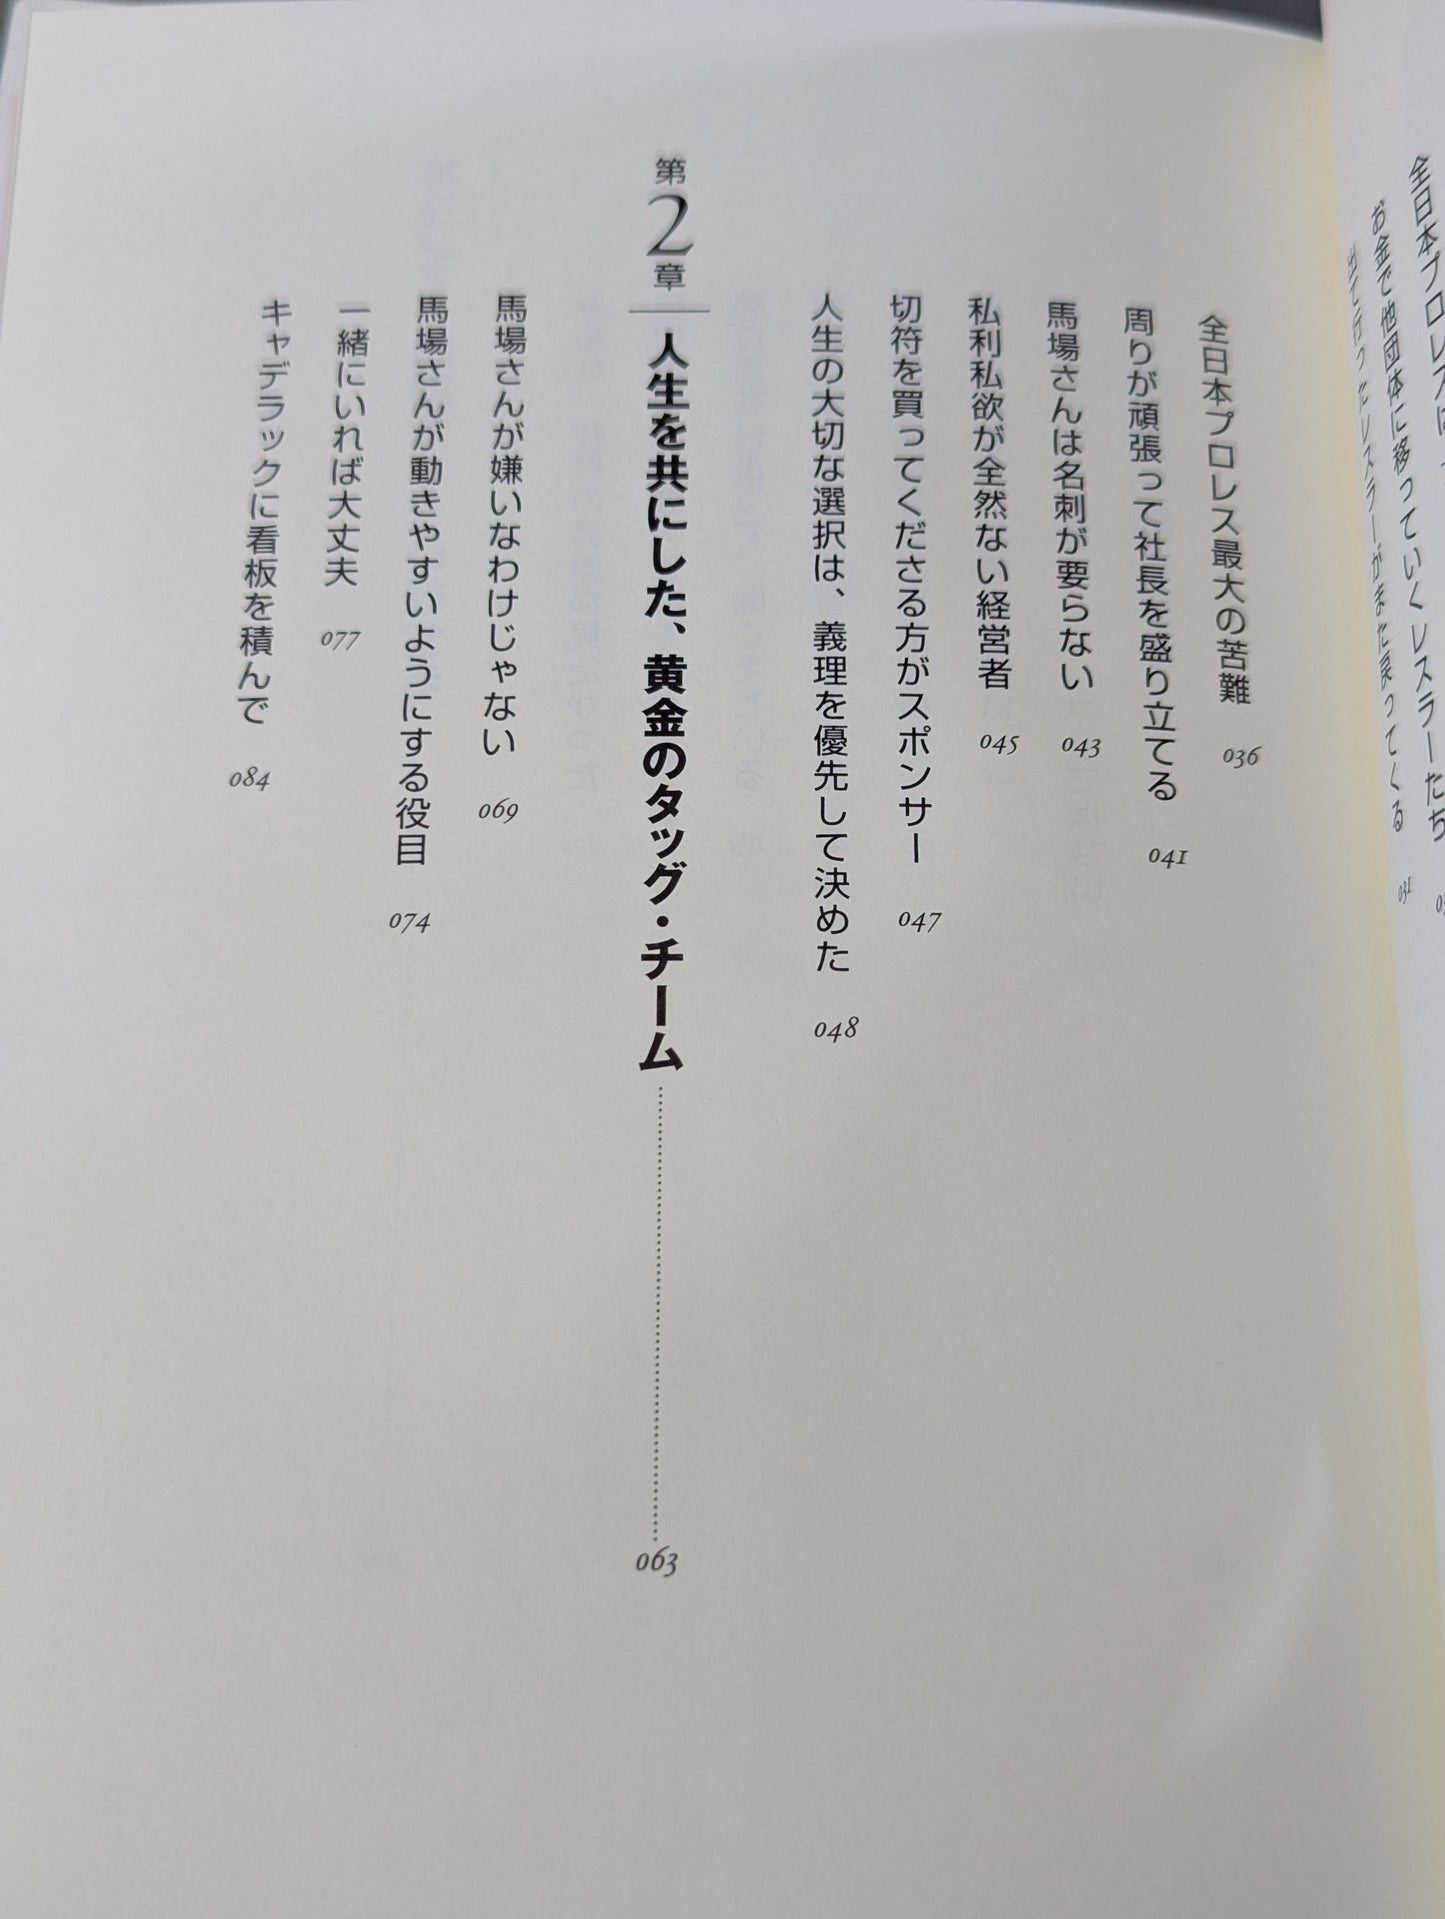 全日本プロレス
お金で他団体に移っていくレスラーたち
出て行ったレスラーがまた戻ってくる 031
全日本プロレス最大の苦難 036
周りが頑張って社長を盛り立てる 041
馬場さんは名刺が要らない 043
私利私欲が全然ない経営者 045
切符を買ってくださる方がスポンサー 047
人生の大切な選択は、義理を優先して決めた 048
第2章 人生を共にした、黄金のタッグ・チーム 063
馬場さんが嫌いなわけじゃない 069
馬場さんが動きやすいようにする役目 074
一緒にいれば大丈夫 077
キャデラックに看板を積んで 084